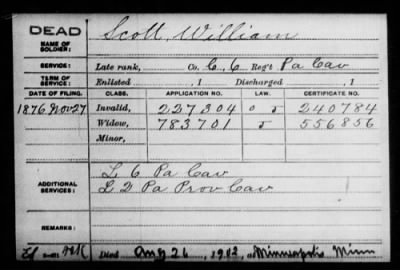 DEAD
NAME OF SOLDIER: Scott, William
SERVICE: Late rank, Co. C, 6 Reg't Pa Cav
TERM OF SERVICE: Enlisted , 1 Discharged , 1
DATE OF FILING. CLASS. APPLICATION NO. LAW. CERTIFICATE NO.
1876 Nov 27 Invalid, 227304 240784
Widow, 783701 556856
Minor,
ADDITIONAL SERVICES: L 6 Pa Cav
L 2 Pa Prov Cav
REMARKS:
Died Aug 26, 1902, at Minneapolis Minn